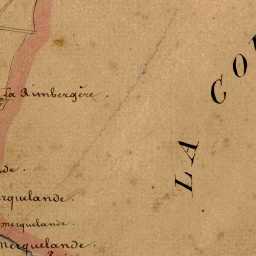 La Rimbergère.
LA COU
nde.
erquelande.
merquelande.
merquelande.